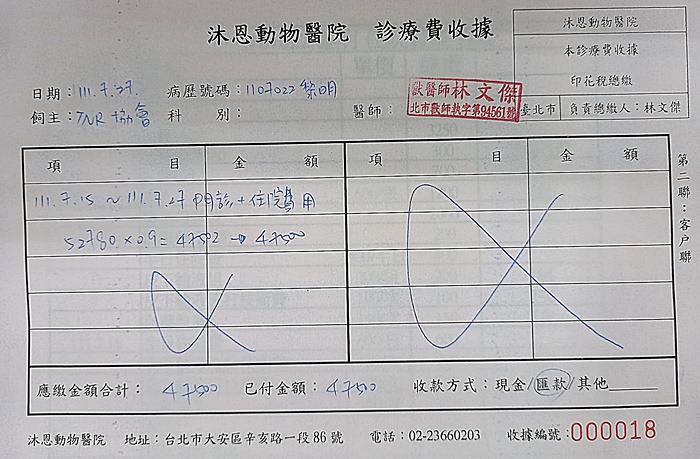 沐恩動物醫院 診療費收據
沐恩動物醫院
本診療費收據
印花稅總繳
臺北市 負責總繳人：林文傑
日期：111.7.27. 病歷號碼：1107022
飼主：TNR 協會 科 別： 醫師：
獸醫師 林文傑
北市獸師執字第94561號
項 目 金 額 項 目 金 額
111.7.15 ~ 111.7.27 門診+住院費用
52780×0.9=47502 → 47500
應繳金額合計： 47500 已付金額： 47500 收款方式：現金/匯款/其他
沐恩動物醫院 地址：台北市大安區辛亥路一段86號 電話：02-23660203 收據編號：000018
第二聯：客戶聯